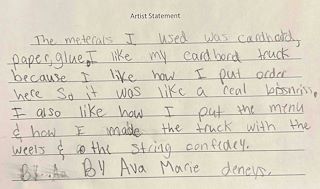 Artist Statement
The meterals I used was cardbord,
paper, glue, I like my cardbord truck
because I like how I put order
here So it was like a real bissniss.
I also like how I put the menu
& how I made the truck with the
weels & the string confedey.
By Ava Marie deneys.